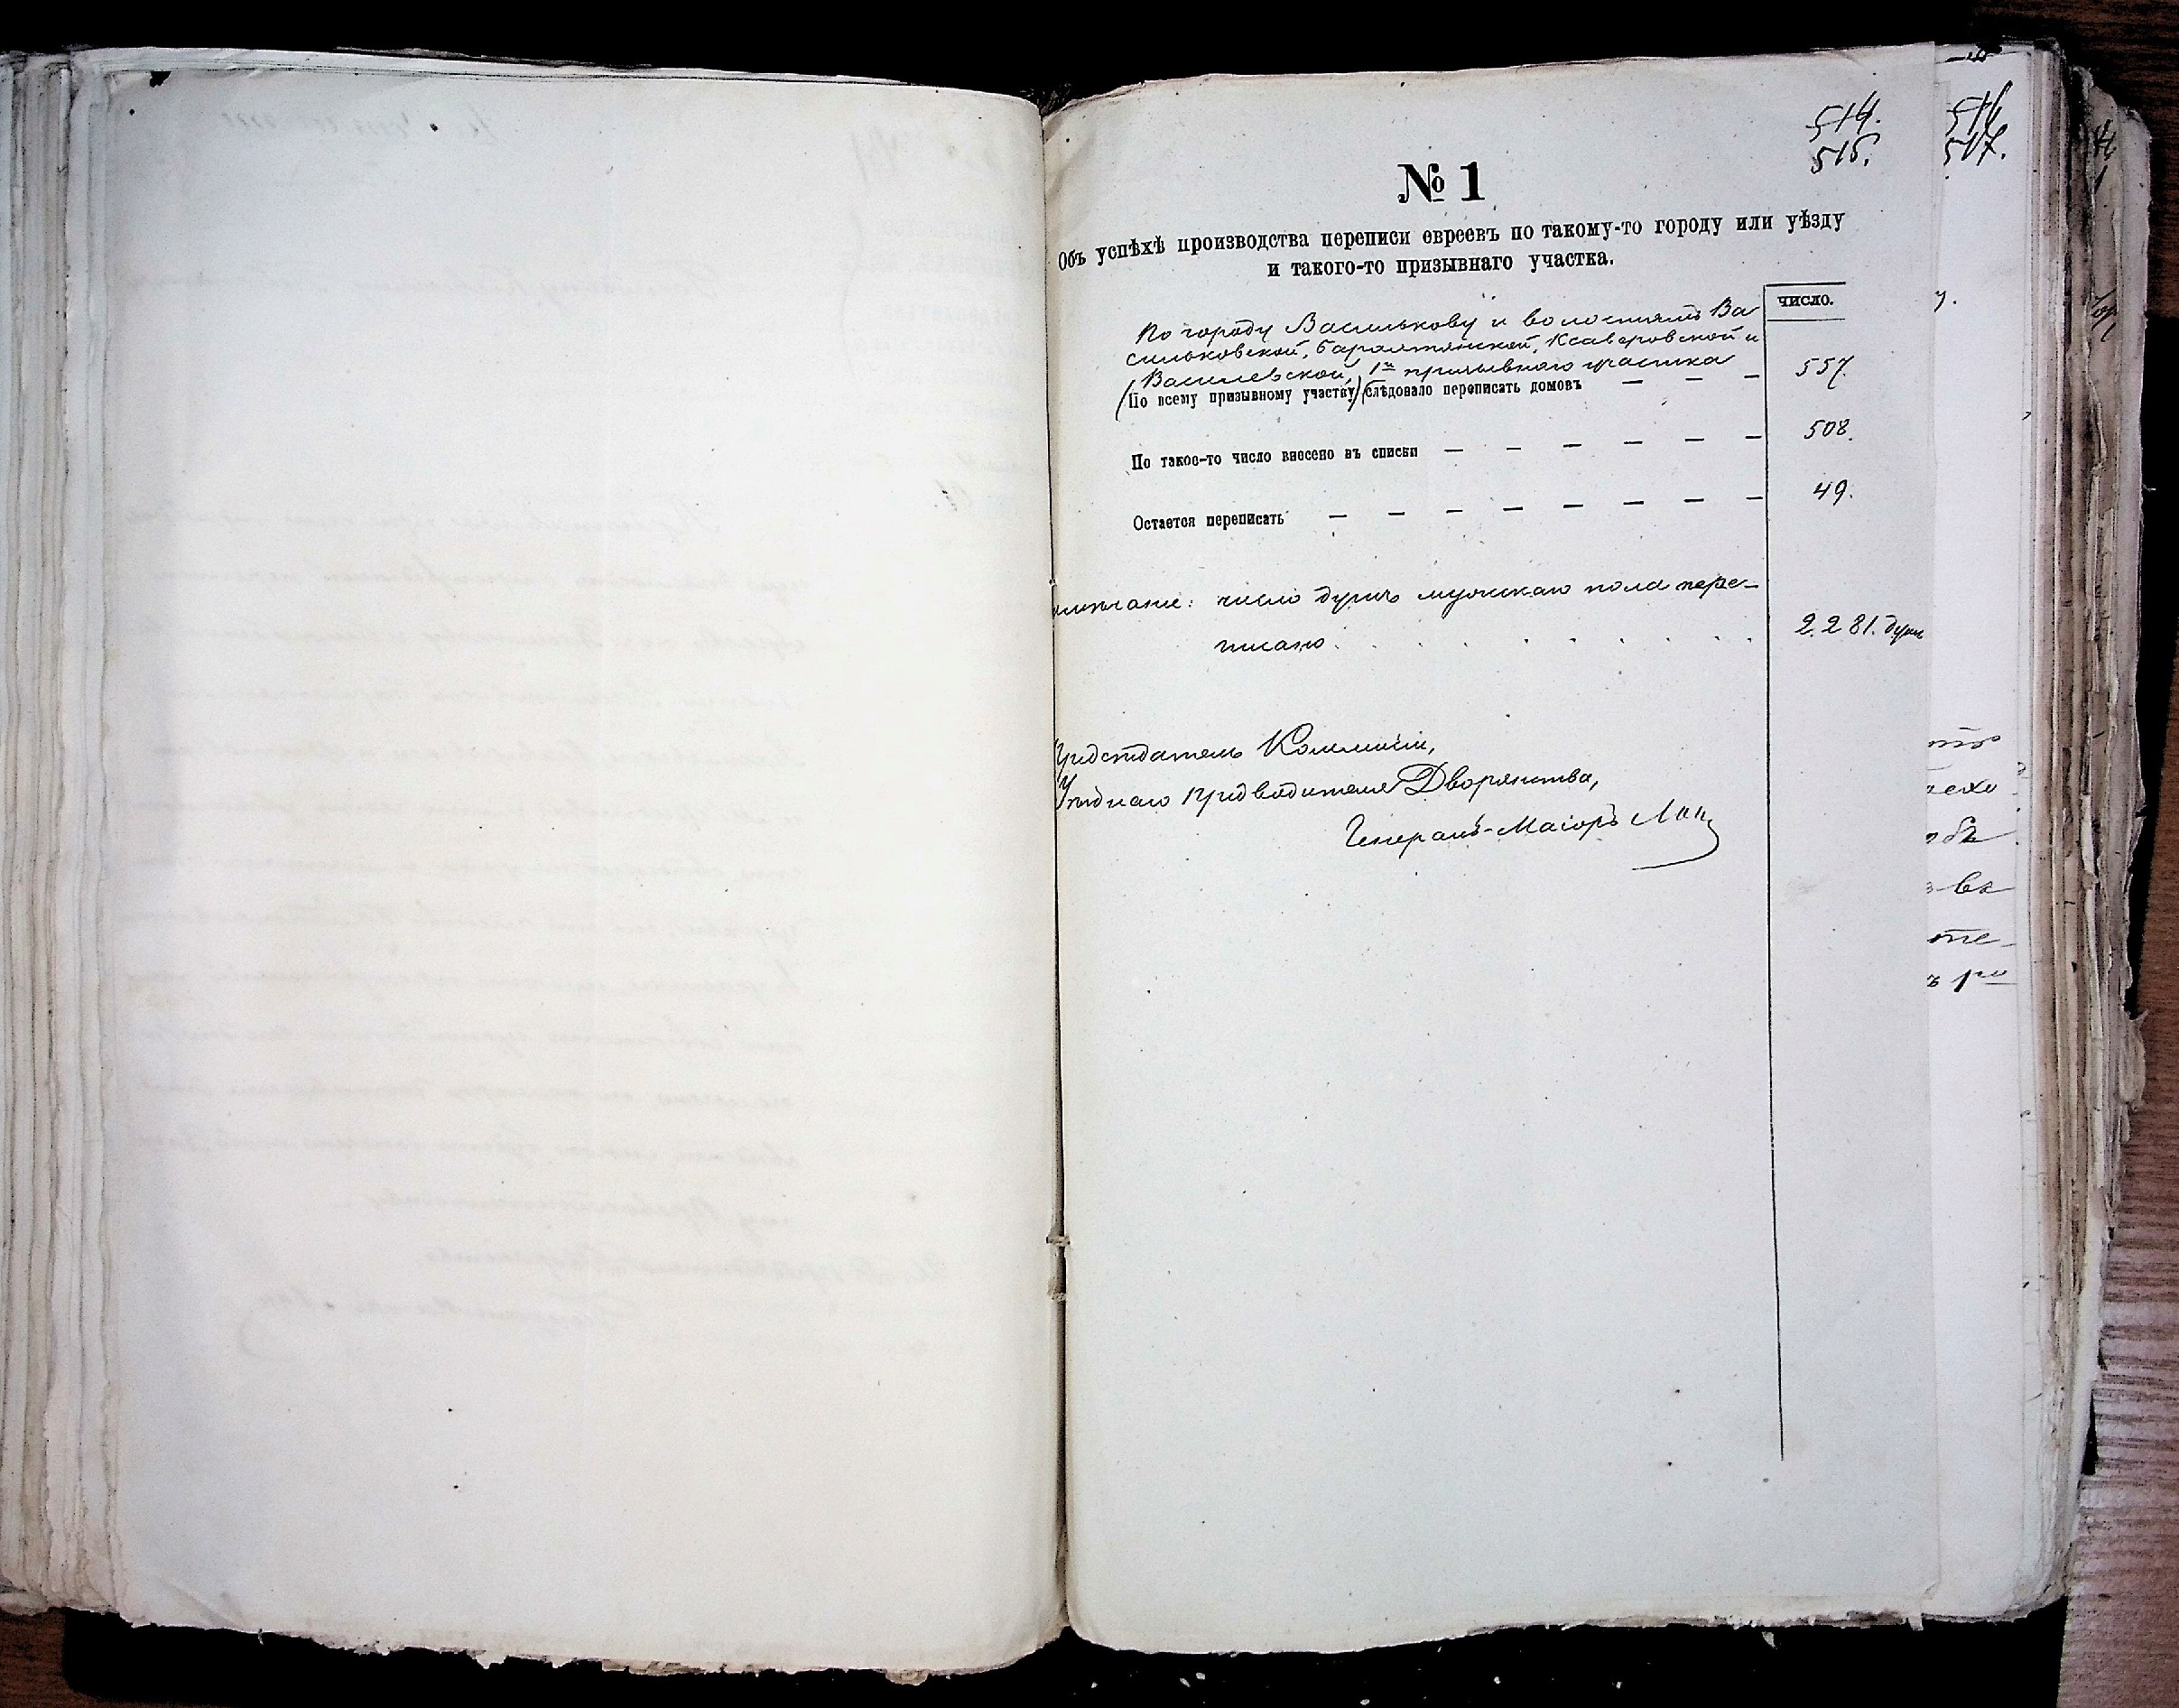 514.
515.
№ 1
Объ успѣхѣ производства переписи евреевъ по такому-то городу или уѣзду
и такого-то призывнаго участка.
число.
По городу Василькову и волостямъ Ва
сильковской, Барахтянской, Ксаверовской и
Василевской, 1го призывнаго участка
(По всему призывному участку) слѣдовало переписать домовъ — — — 557.
По такое-то число внесено въ списки — — — — — — 508.
Остается переписать — — — — — — — — 49.
число душъ мужскаго пола пере-
писано . . . . . . . . 2.281. душъ
Предсѣдатель Коммисіи,
Уѣзднаго Предводителя Дворянства,
Генералъ-Маіоръ
516
517.